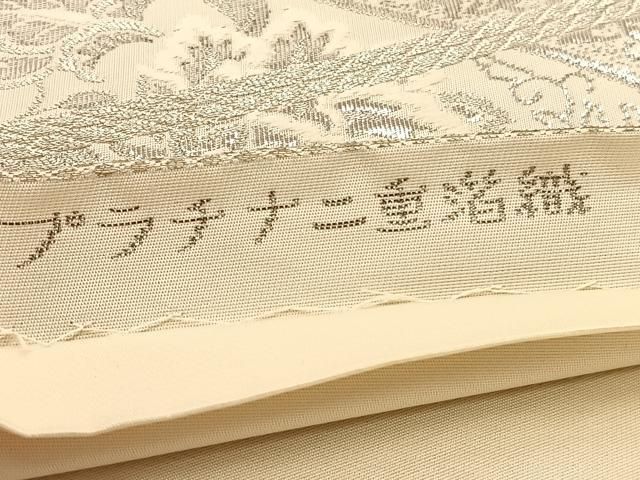 プラチナ二重箔織